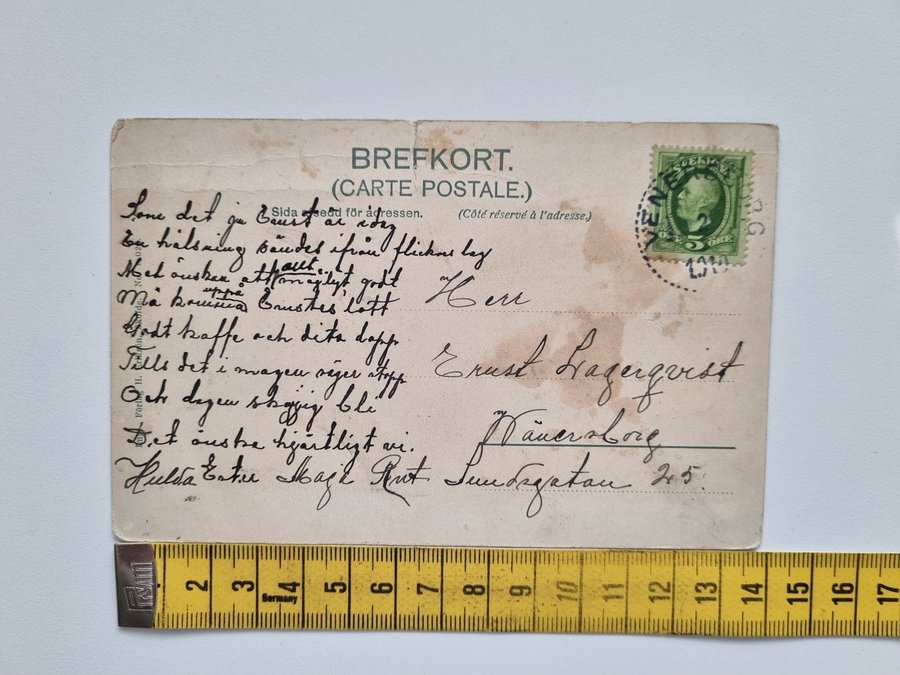 BREFKORT.
(CARTE POSTALE.)
Sida afsedd för adressen. (Côté réservé à l'adresse.)
SVERIGE
ÖRE 5 ÖRE
VENERSBORG
1910
Som det ju Ernst är idag
En hälsning sändes ifrån flickors lag
Med önskan att allt möjligt godt
Må komma uppå Ernstes lott
Godt kaffe och dito dopp
Tills det i magen säger stopp
Och dagen skojig bli
Det önska hjärtligt vi.
Hulda Ester Maga Rut
Herr
Ernst Lagerqvist
Wänersborg
Sundsgatan 25.
Förlag H.
Germany
2 3 4 5 6 7 8 9 10 11 12 13 14 15 16 17